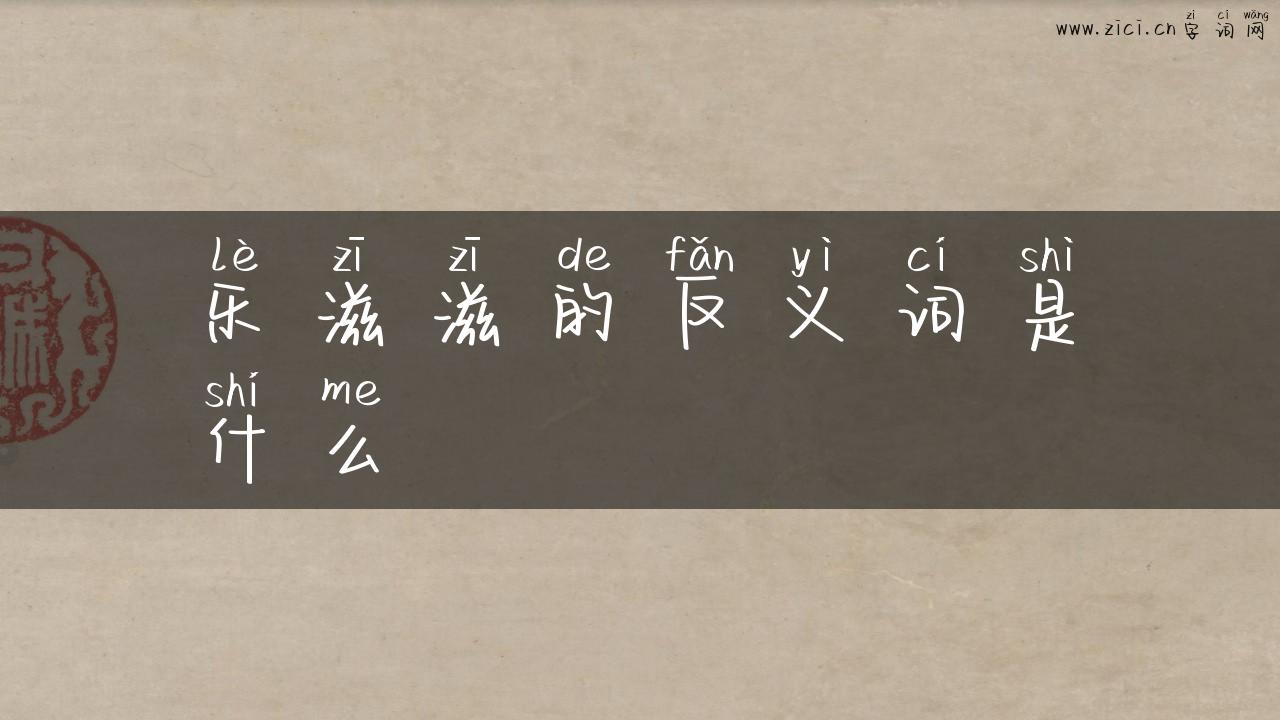 zì cí wǎng
www.zici.cn 字词网
lè zī zī de fǎn yì cí shì
乐滋滋的反义词是
shí me
什么